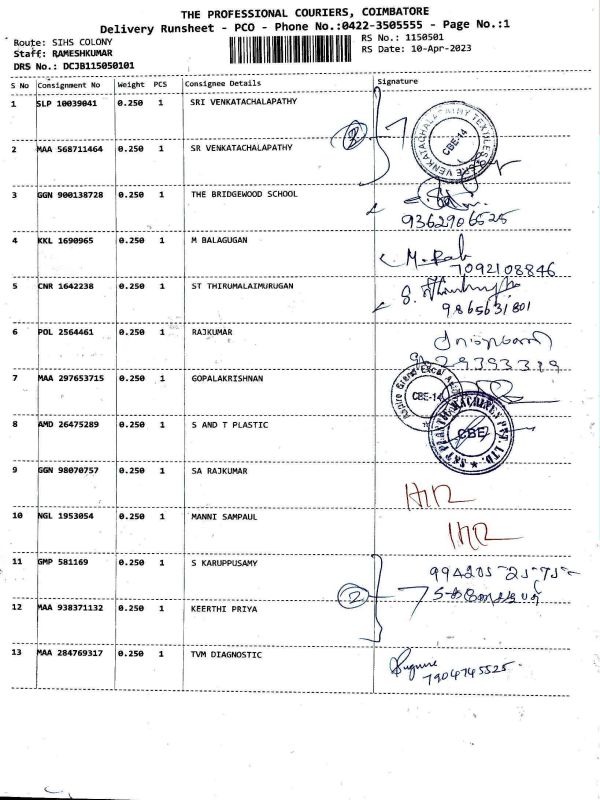 THE PROFESSIONAL COURIERS, COIMBATORE
Delivery Runsheet - PCO - Phone No.:0422-3505555 - Page No.:1
Route: SIHS COLONY
RS No.: 1150501
Staff: RAMESHKUMAR
RS Date: 10-Apr-2023
DRS No.: DCJB115050101
S No Consignment No Weight PCS Consignee Details Signature
1 SLP 10039041 0.250 1 SRI VENKATACHALAPATHY
2 MAA 568711464 0.250 1 SR VENKATACHALAPATHY
CBE-14
3 GGN 900138728 0.250 1 THE BRIDGEWOOD SCHOOL
9362906525
4 KKL 1690965 0.250 1 M BALAGUGAN
7092108846
5 CNR 1642238 0.250 1 ST THIRUMALAIMURUGAN
9865631801
6 POL 2564461 0.250 1 RAJKUMAR
7 MAA 297653715 0.250 1 GOPALAKRISHNAN
CBE-14
8 AMD 26475289 0.250 1 S AND T PLASTIC
CBE
9 GGN 98070757 0.250 1 SA RAJKUMAR
10 NGL 1953054 0.250 1 MANNI SAMPAUL
11 GMP 581169 0.250 1 S KARUPPUSAMY
2
12 MAA 938371132 0.250 1 KEERTHI PRIYA
13 MAA 284769317 0.250 1 TVM DIAGNOSTIC
7904745525